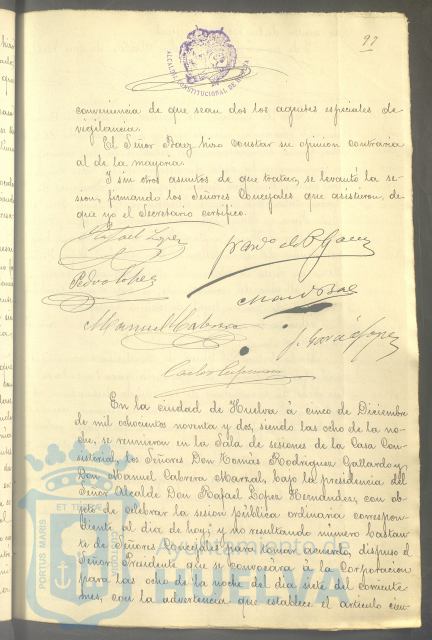 97
ALCALDIA CONSTITUCIONAL DE HUELVA
conveniencia de que sean dos los agentes especiales de
vigilancia.
El Señor Baez hizo constar su opinion contraria
al de la mayoria.
I sin otros asuntos de que tratar, se levantó la se-
sion, firmando los Señores Concejales que asistieron, de
que yo el Secretario certifico.
Rafael Lopez
Pedro Lopez
Manuel Cabrera
En la ciudad de Huelva á cinco de Diciembre
de mil ochocientos noventa y dos, siendo las ocho de la no-
che, se reunieron en la Sala de sesiones de la Casa Con-
sistorial, los Señores Don Tomás Rodriguez Gallardo y
Don Manuel Cabrera Marzal, bajo la presidencia del
Señor Alcalde Don Rafael Lopez Hernandez, con ob-
jeto de celebrar la sesion pública ordinaria correspon-
diente al dia de hoy; y no resultando número bastan-
te de Señores Concejales para tomar acuerdo, dispuso el
Señor Presidente que se convocára á la Corporacion
para las ocho de la noche del dia siete del corriente
mes, con la advertencia que establece el artículo cien-
PORTUS MARIS
ET TERRAE
Ayuntamiento de
HUELVA